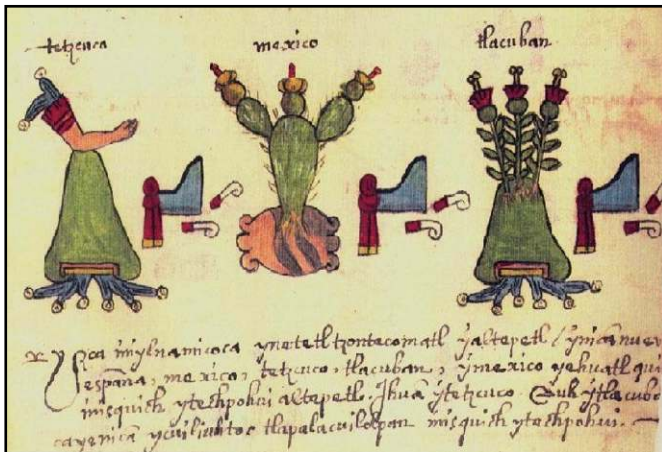 tetzcuca mexico tlacuban
ysca imylnamicoca ynetetl tzontecomatl yaltepetl / ynican nuev
españa, mexico, tetzcuco, tlacuban, ymexico yehuatl qui
misquich ytechpohui altepetl. Ihuā ytetzcuco. Auh ytlacuba
cayenica ycuiliuhtoc tlapalacuilolpan misquich ytechpohui.